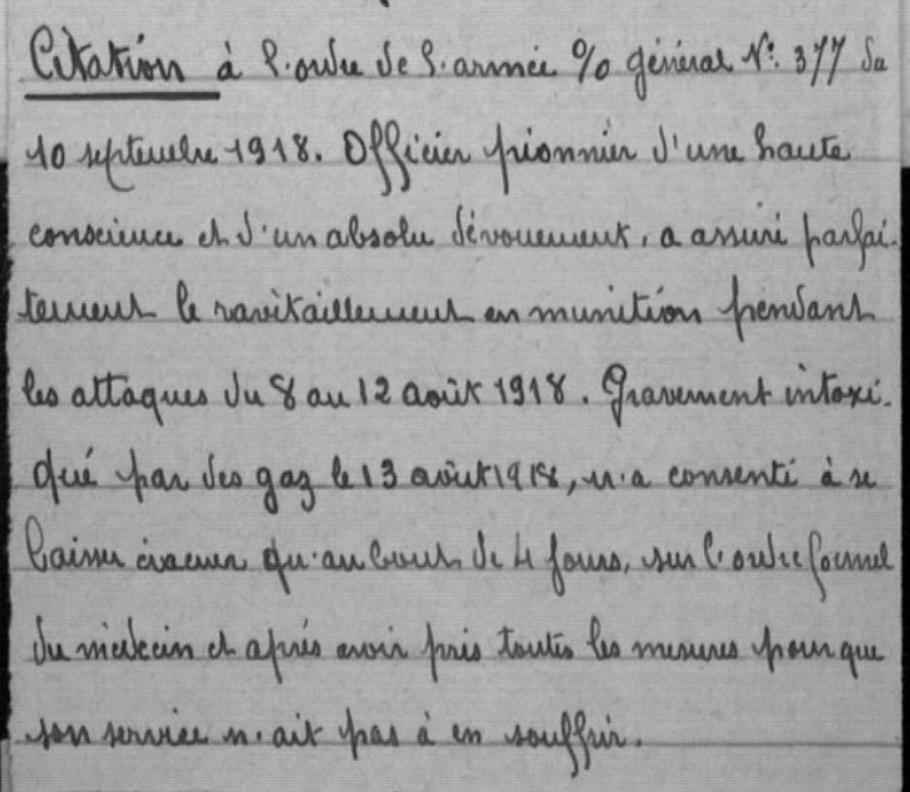 Citation à l'ordre de l'armée % général N°: 377 du
10 septembre 1918. Officier pionnier d'une haute
conscience et d'un absolu dévouement, a assuré parfai-
tement le ravitaillement en munition pendant
les attaques du 8 au 12 août 1918. Gravement intoxi-
qué par des gaz le 13 août 1918, n'a consenti à se
laisser évacuer qu'au bout de 4 jours, sur l'ordre formel
du médecin et après avoir pris toutes les mesures pour que
son service n'ait pas à en souffrir.